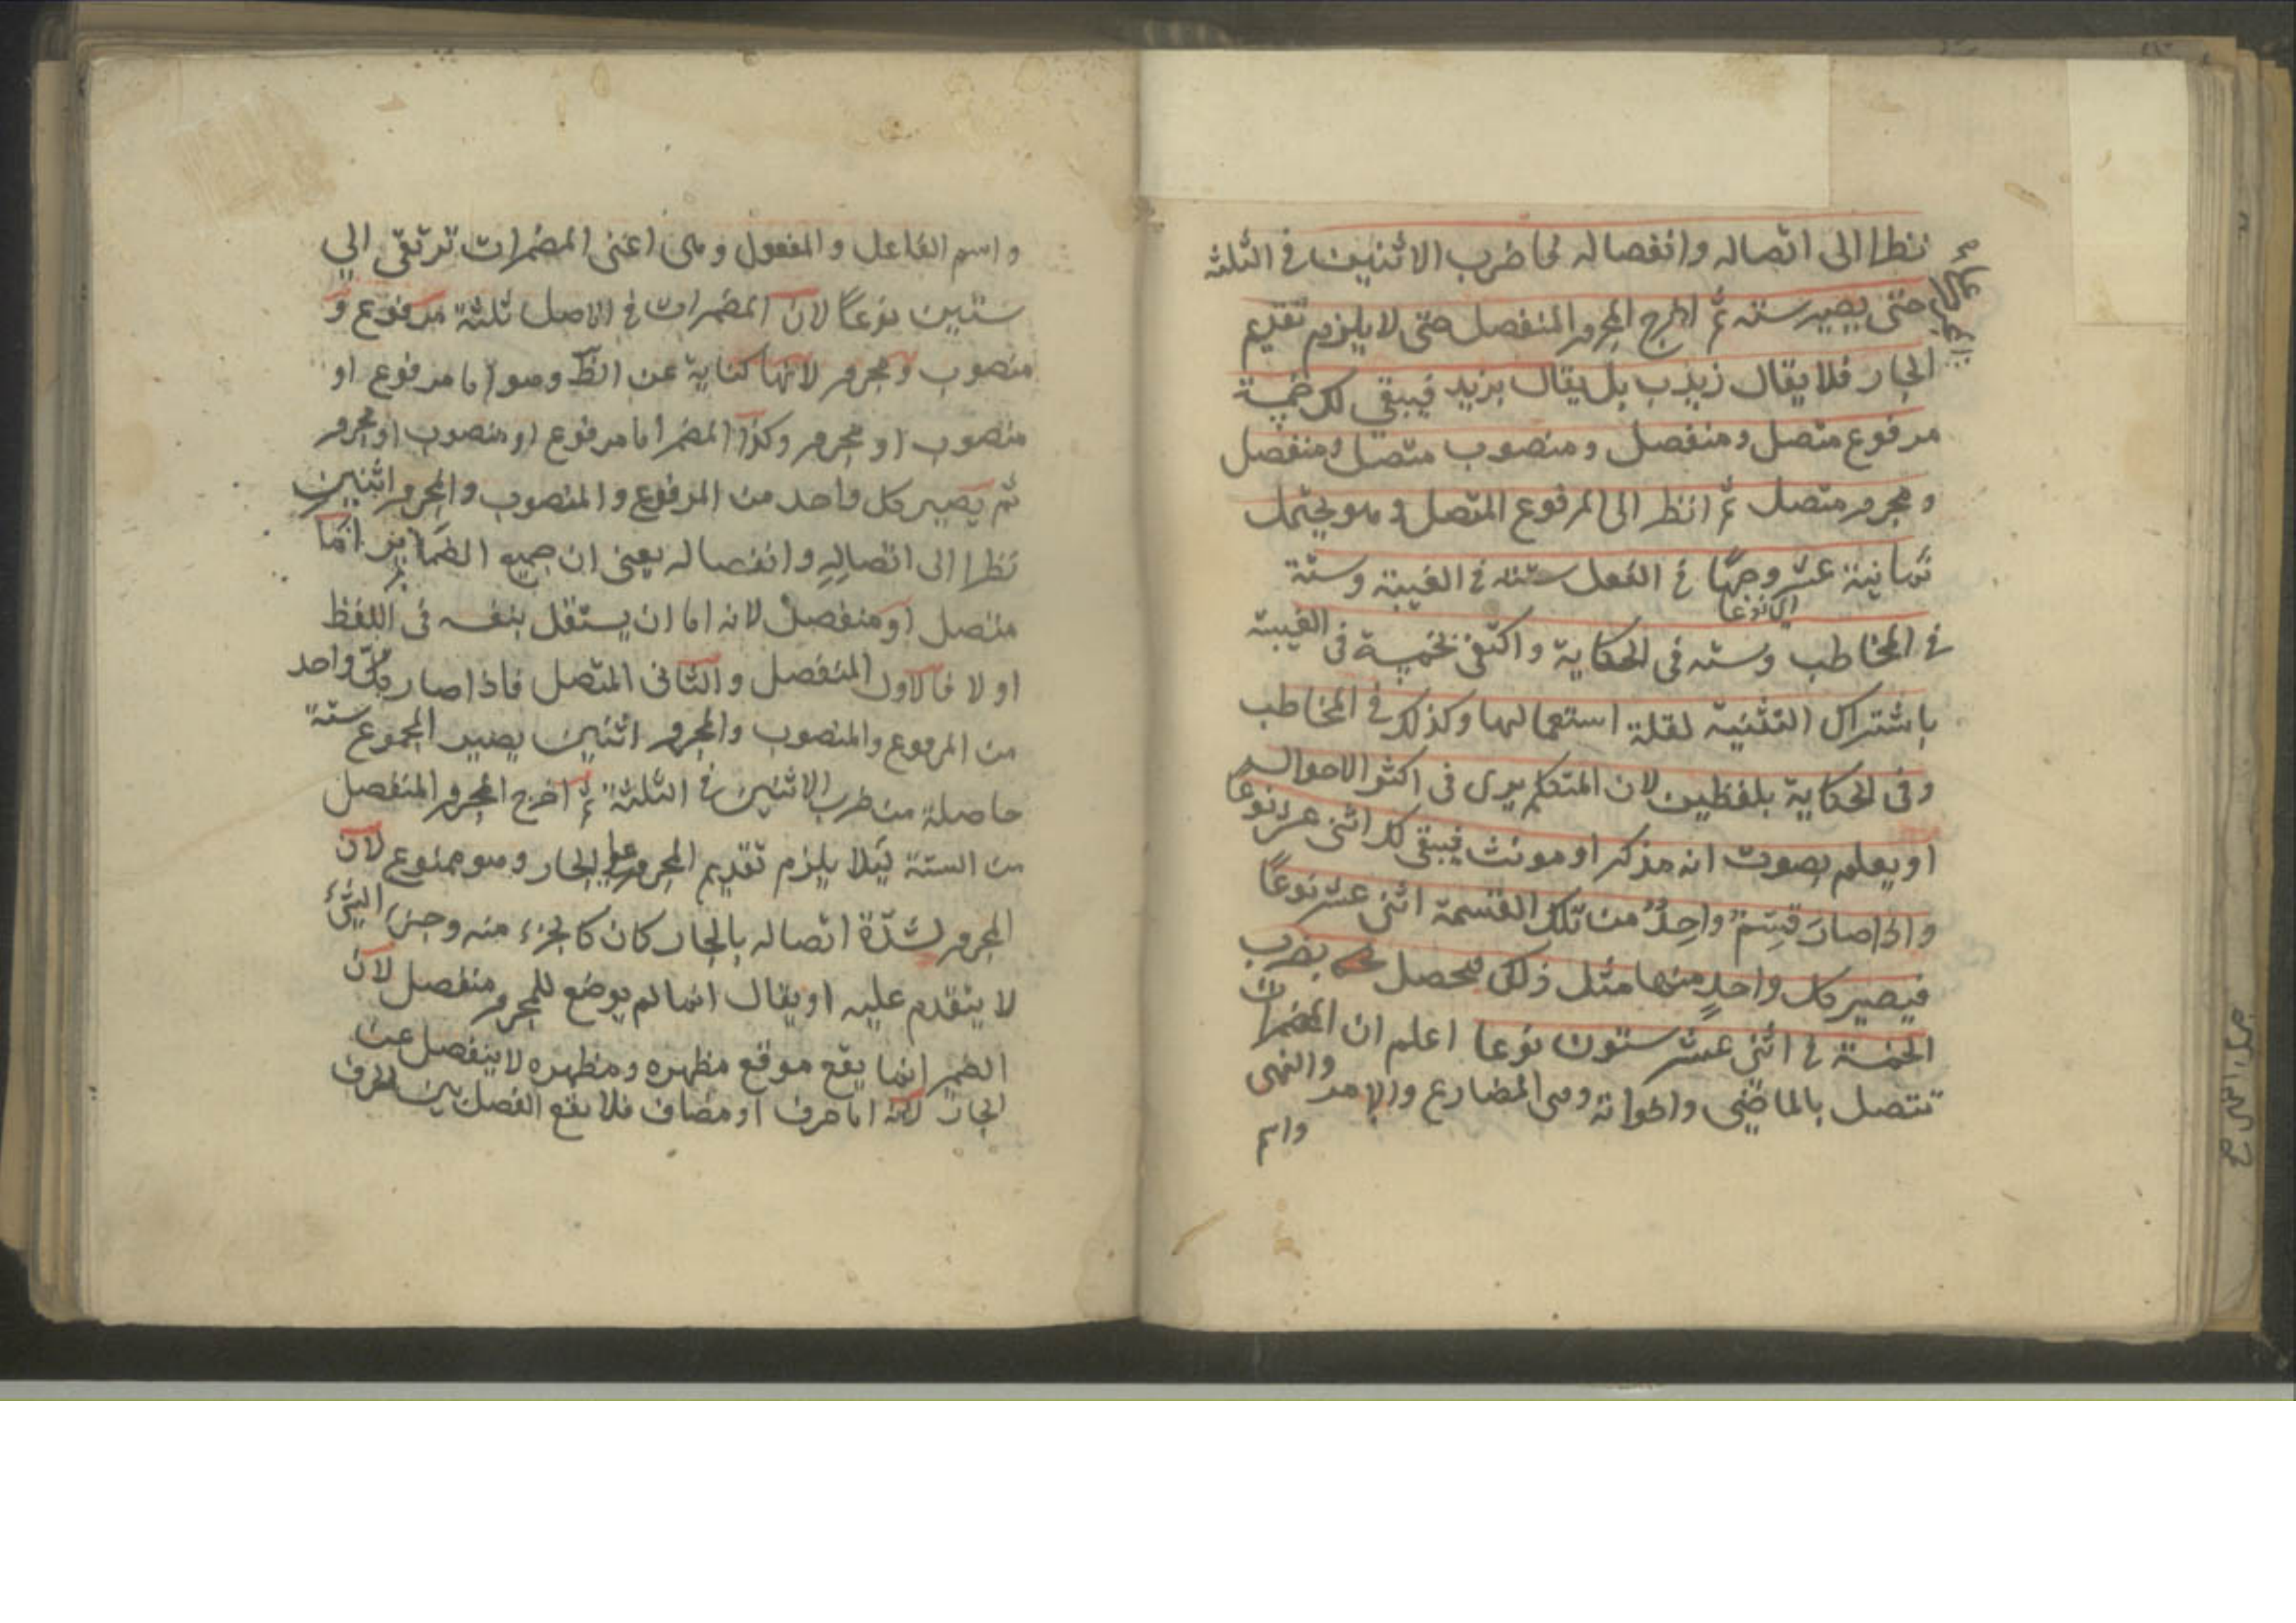 نظرا الى اتصاله وانفصاله فاضرب الاثنين في الثلثة
حتى يصير ستة ثم اخرج المجرور المنفصل حتى لا يلزم تقديم
الجار فلا يقال زيد ب بل يقال بزيد فيبقى لك خمسة
مرفوع متصل ومنفصل ومنصوب متصل ومنفصل
ومجرور متصل ثم انظر الى المرفوع المتصل وهو يحتمل
ثمانية عشر وجها في الفعل ستة في الغيبة وستة
اى نوعا
في المخاطب وستة فى الحكاية واكتفى بخمسة فى الغيبة
باشتراك التثنية لقلة استعمالها وكذلك في المخاطب
وفى الحكاية بلفظين لان المتكلم يرى فى اكثر الاحوال
او يعلم بصوت انه مذكر او مونث فيبقى لك اثنى عشر نوعا
واذا صار قسم واحد من تلك القسمة اثنى عشر نوعا
فيصير كل واحد منها مثل ذلك فيحصل بضرب
الخمسة في اثنى عشر ستون نوعا اعلم ان المضمرات
تتصل بالماضى واخواته وهى المضارع والامر والنهى
واسم
واسم الفاعل والمفعول وهى اعنى المضمرات ترتقى الى
ستين نوعا لان المضمرات في الاصل ثلثة مرفوع و
منصوب ومجرور لانها كناية عن الظ وهو اما مرفوع او
منصوب او مجرور وكذا المضمر اما مرفوع او منصوب او مجرور
ثم يصير كل واحد من المرفوع والمنصوب والمجرور اثنين
نظرا الى اتصاله وانفصاله يعنى ان جميع الضمائر اما
متصل او منفصل لانه اما ان يستقل بنفسه فى اللفظ
او لا فالاول المنفصل والثانى المتصل فاذا صار كل واحد
من المرفوع والمنصوب والمجرور اثنين يصير المجموع ستة
حاصلة من ضرب الاثنين في الثلثة ثم اخرج المجرور المنفصل
من الستة لئلا يلزم تقديم المجرور على الجار وهو ممنوع لان
المجرور لشدة اتصاله بالجار كان كالجزء منه وجزء الشئ
لا يتقدم عليه او يقال انما لم يوضع للمجرور منفصل لان
الضمير انما يقع موقع مظهره ومظهره لا ينفصل عن
الجار لانه اما حرف او مضاف فلا يقع الفصل بين الحرف